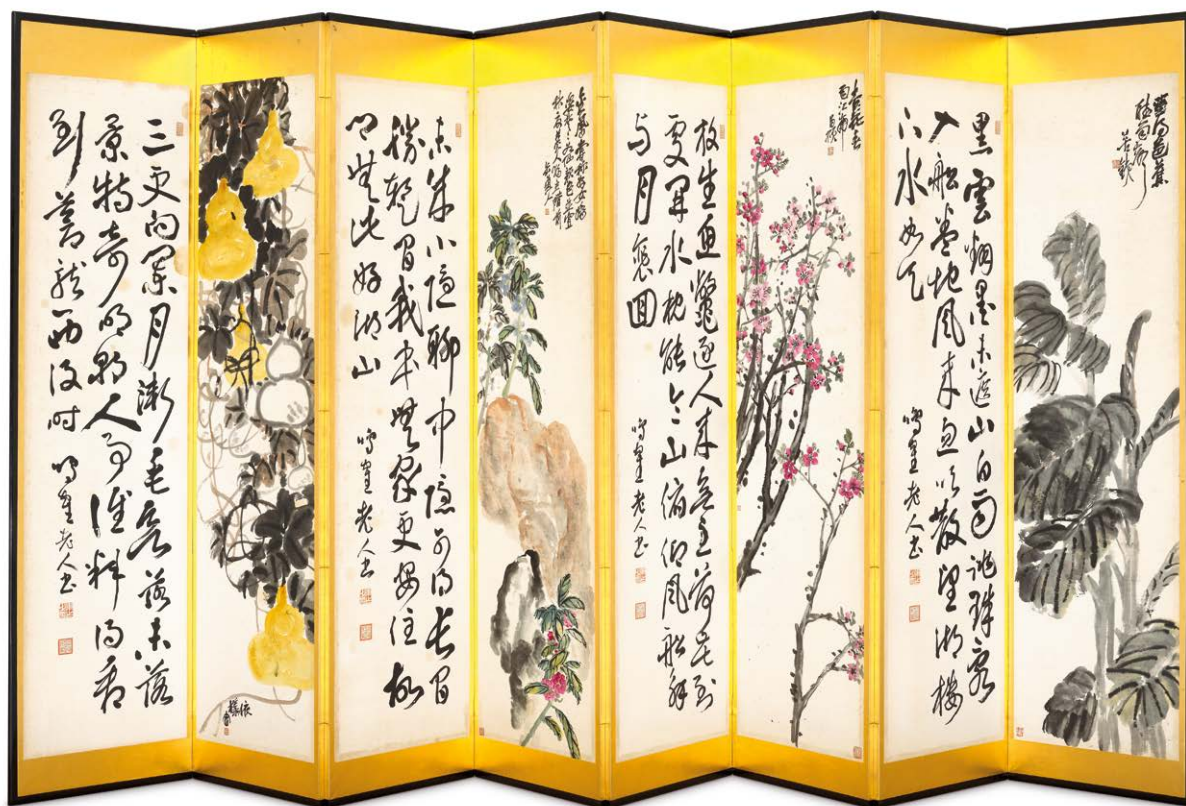 苦鐵
黑雲翻墨未遮山白雨跳珠亂
入船卷地風來忽吹散望湖樓
下水如天
鳴鶴老人書
放生魚鱉逐人來無主荷花到
處開水枕能令山俯仰風船解
與月裵回
鳴鶴老人書
未成小隱聊中隱可得長閒
勝暫閒我本無家更安往故
鄉無此好湖山
鳴鶴老人書
依樣
三更向闌月漸垂欲落未落
景特奇明朝人事誰料得看
到蒼龍西沒時
鳴鶴老人書